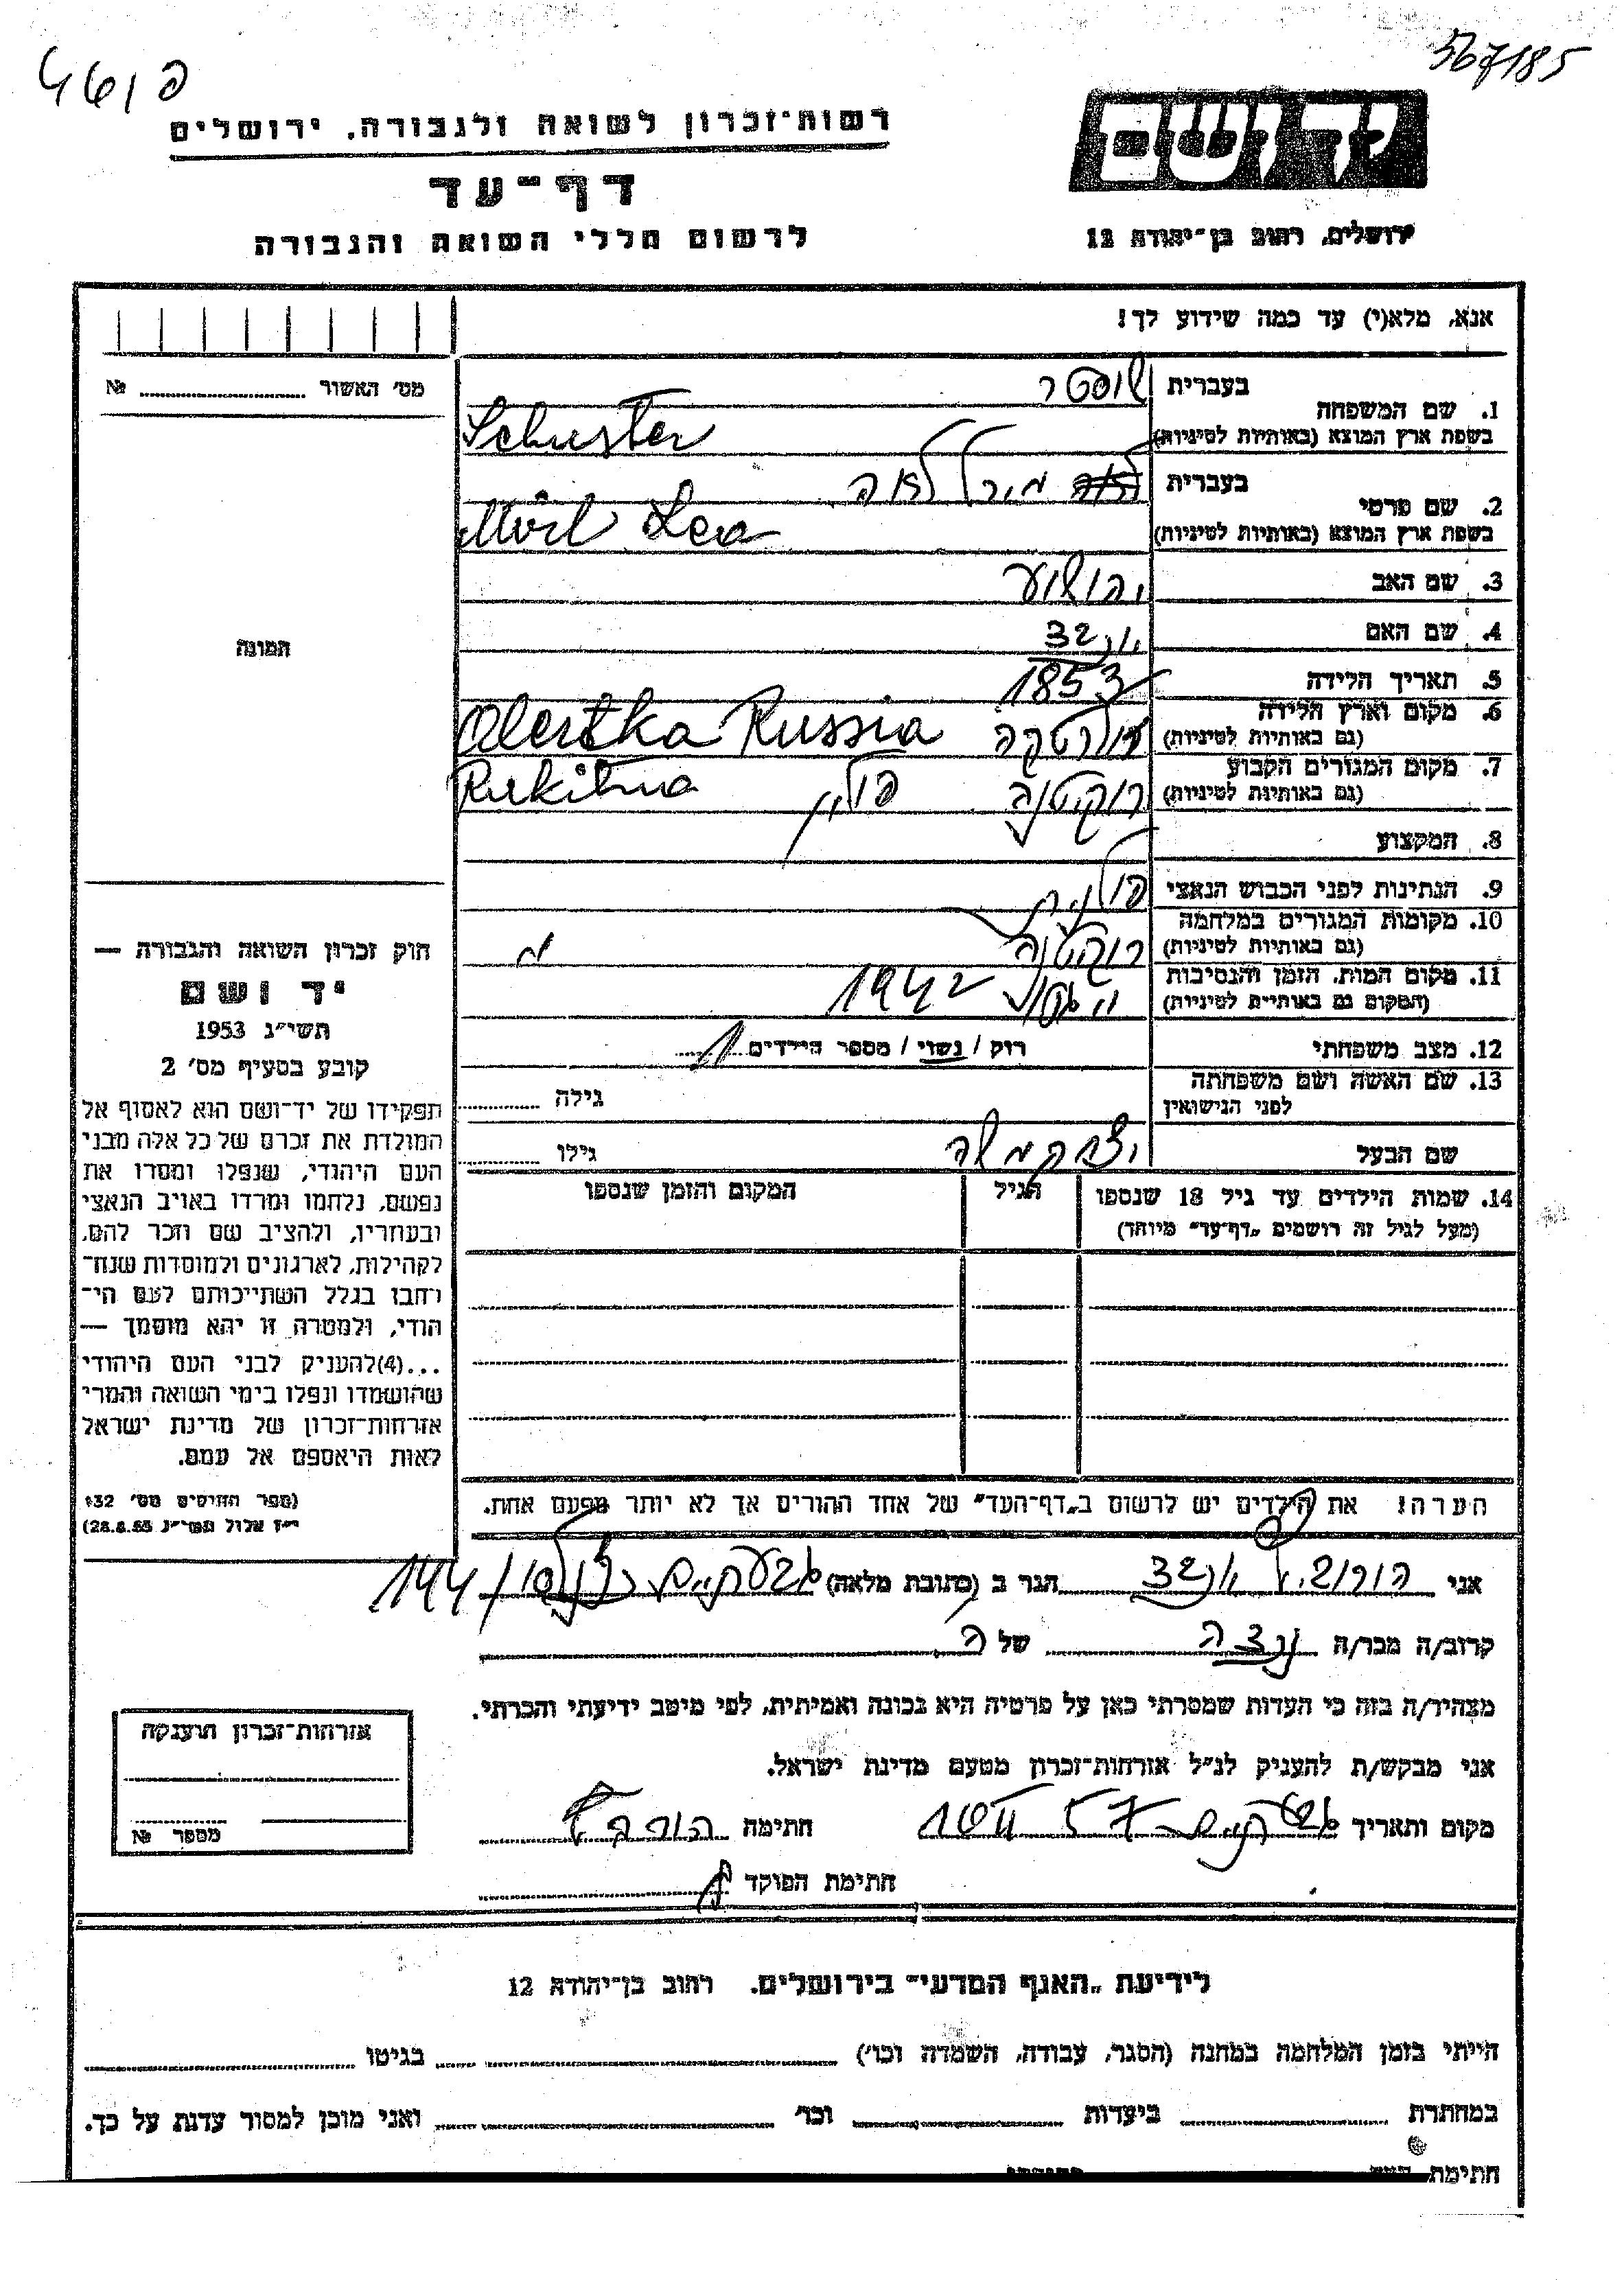 367185
רשות־זכרון לשואה ולגבורה, ירושלים
דף־עד
לרשום חללי השואה והגבורה
יד ושם
ירושלים, רחוב בן־יהודה 12
אנא, מלא(י) עד כמה שידוע לך!
מס׳ האשור № ........
1. שם המשפחה
בעברית שוסטר
בשפת ארץ המוצא (באותיות לטיניות) Schuster
2. שם פרטי
בעברית מירל לאה
בשפת ארץ המוצא (באותיות לטיניות) Mirl Lea
3. שם האב יהושוע
4. שם האם
5. תאריך הלידה 1853
6. מקום וארץ הלידה
(גם באותיות לטיניות) Olerska Russia
7. מקום המגורים הקבוע
(גם באותיות לטיניות) רוקיטנה פולין Rukitna
8. המקצוע
9. הנתינות לפני הכבוש הנאצי פולנית
10. מקומות המגורים במלחמה
(גם באותיות לטיניות) רוקיטנה
11. מקום המות, הזמן והנסיבות
(המקום גם באותיות לטיניות) 1942
12. מצב משפחתי רוק / נשוי / מספר הילדים 1
13. שם האשה ושם משפחתה
לפני הנישואין
גילה ........
שם הבעל גילו ........
14. שמות הילדים עד גיל 18 שנספו
(מעל לגיל זה רושמים „דף־עד״ מיוחד)
הגיל
המקום והזמן שנספו
הערה! את הילדים יש לרשום ב„דף־העד״ של אחד ההורים אך לא יותר מפעם אחת.
תמונה
חוק זכרון השואה והגבורה —
יד ושם
תשי״ג 1953
קובע בסעיף מס׳ 2
תפקידו של יד־ושם הוא לאסוף אל
המולדת את זכרם של כל אלה מבני
העם היהודי, שנפלו ומסרו את
נפשם, נלחמו ומרדו באויב הנאצי
ובעוזריו, ולהציב שם וזכר להם,
לקהילות, לארגונים ולמוסדות שנח־
רחבו בגלל השתייכותם לעם הי־
הודי, ולמטרה זו יהא מוסמך —
...(4)להעניק לבני העם היהודי
שהושמדו ונפלו בימי השואה והמרי
אזרחות־זכרון של מדינת ישראל
לאות היאספם אל עמם.
(ספר החוקים מס׳ 132
י״ז אלול תשי״ג 28.8.53)
אני הורוביץ הגר ב (כתובת מלאה) 144/
קרוב/ה מכר/ה נכדה של ה
מצהיר/ה בזה כי העדות שמסרתי כאן על פרטיה היא נכונה ואמיתית, לפי מיטב ידיעתי והכרתי.
אני מבקש/ת להעניק לנ״ל אזרחות־זכרון מטעם מדינת ישראל.
מקום ותאריך 57 חתימה
חתימת הפוקד
אזרחות־זכרון הוענקה
מספר №
לידיעת „האגף המדעי״ בירושלים. רחוב בן־יהודה 12
הייתי בזמן המלחמה במחנה (הסגר, עבודה, השמדה וכו׳) ........ בגיטו ........
במחתרת ........ ביערות ........ וכו׳ ........ ואני מוכן למסור עדות על כך.
חתימת